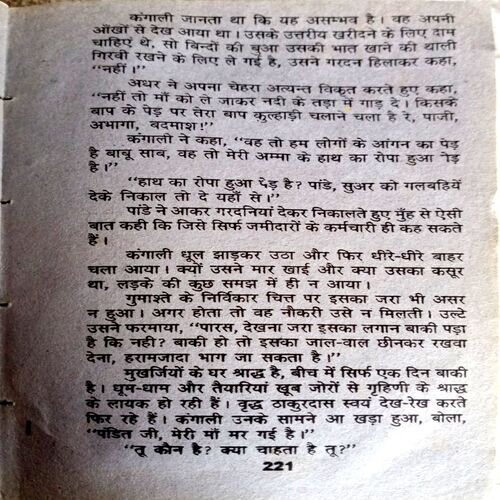 कंगाली जानता था कि यह असम्भव है। वह अपनी
आँखों से देख आया था। उसके उत्तरीय खरीदने के लिए दाम
चाहिए थे, सो बिन्दों की बुआ उसकी भात खाने की थाली
गिरवी रखने के लिए ले गई है, उसने गरदन हिलाकर कहा,
“नहीं।”
अधर ने अपना चेहरा अत्यन्त विकृत करते हुए कहा,
“नहीं तो माँ को ले जाकर नदी के तड़ा में गाड़ दे। किसके
बाप के पेड़ पर तेरा बाप कुल्हाड़ी चलाने चला है रे, पाजी,
अभागा, बदमाश!”
कंगाली ने कहा, “वह तो हम लोगों के आंगन का पेड़
है बाबू साब, वह तो मेरी अम्मा के हाथ का रोपा हुआ पेड़
है।”
“हाथ का रोपा हुआ पेड़ है? पांडे, सुअर को गलबहियें
देके निकाल तो दे यहाँ से।”
पांडे ने आकर गरदनियां देकर निकालते हुए मुँह से ऐसी
बात कही कि जिसे सिर्फ जमीदारों के कर्मचारी ही कह सकते
हैं।
कंगाली धूल झाड़कर उठा और फिर धीरे-धीरे बाहर
चला आया। क्यों उसने मार खाई और क्या उसका कसूर
था, लड़के की कुछ समझ में ही न आया।
गुमाश्ते के निर्विकार चित्त पर इसका जरा भी असर
न हुआ। अगर होता तो वह नौकरी उसे न मिलती। उल्टे
उसने फरमाया, “पारस, देखना जरा इसका लगान बाकी पड़ा
है कि नही? बाकी हो तो इसका जाल-वाल छीनकर रखवा
देना, हरामजादा भाग जा सकता है।”
मुखर्जियों के घर श्राद्ध है, बीच में सिर्फ एक दिन बाकी
है। धूम-धाम और तैयारियां खूब जोरों से गृहिणी के श्राद्ध
के लायक हो रही हैं। वृद्ध ठाकुरदास स्वयं देख-रेख करते
फिर रहे हैं। कंगाली उनके सामने आ खड़ा हुआ, बोला,
“पंडित जी, मेरी माँ मर गई है।”
“तू कौन है? क्या चाहता है तू?”
221